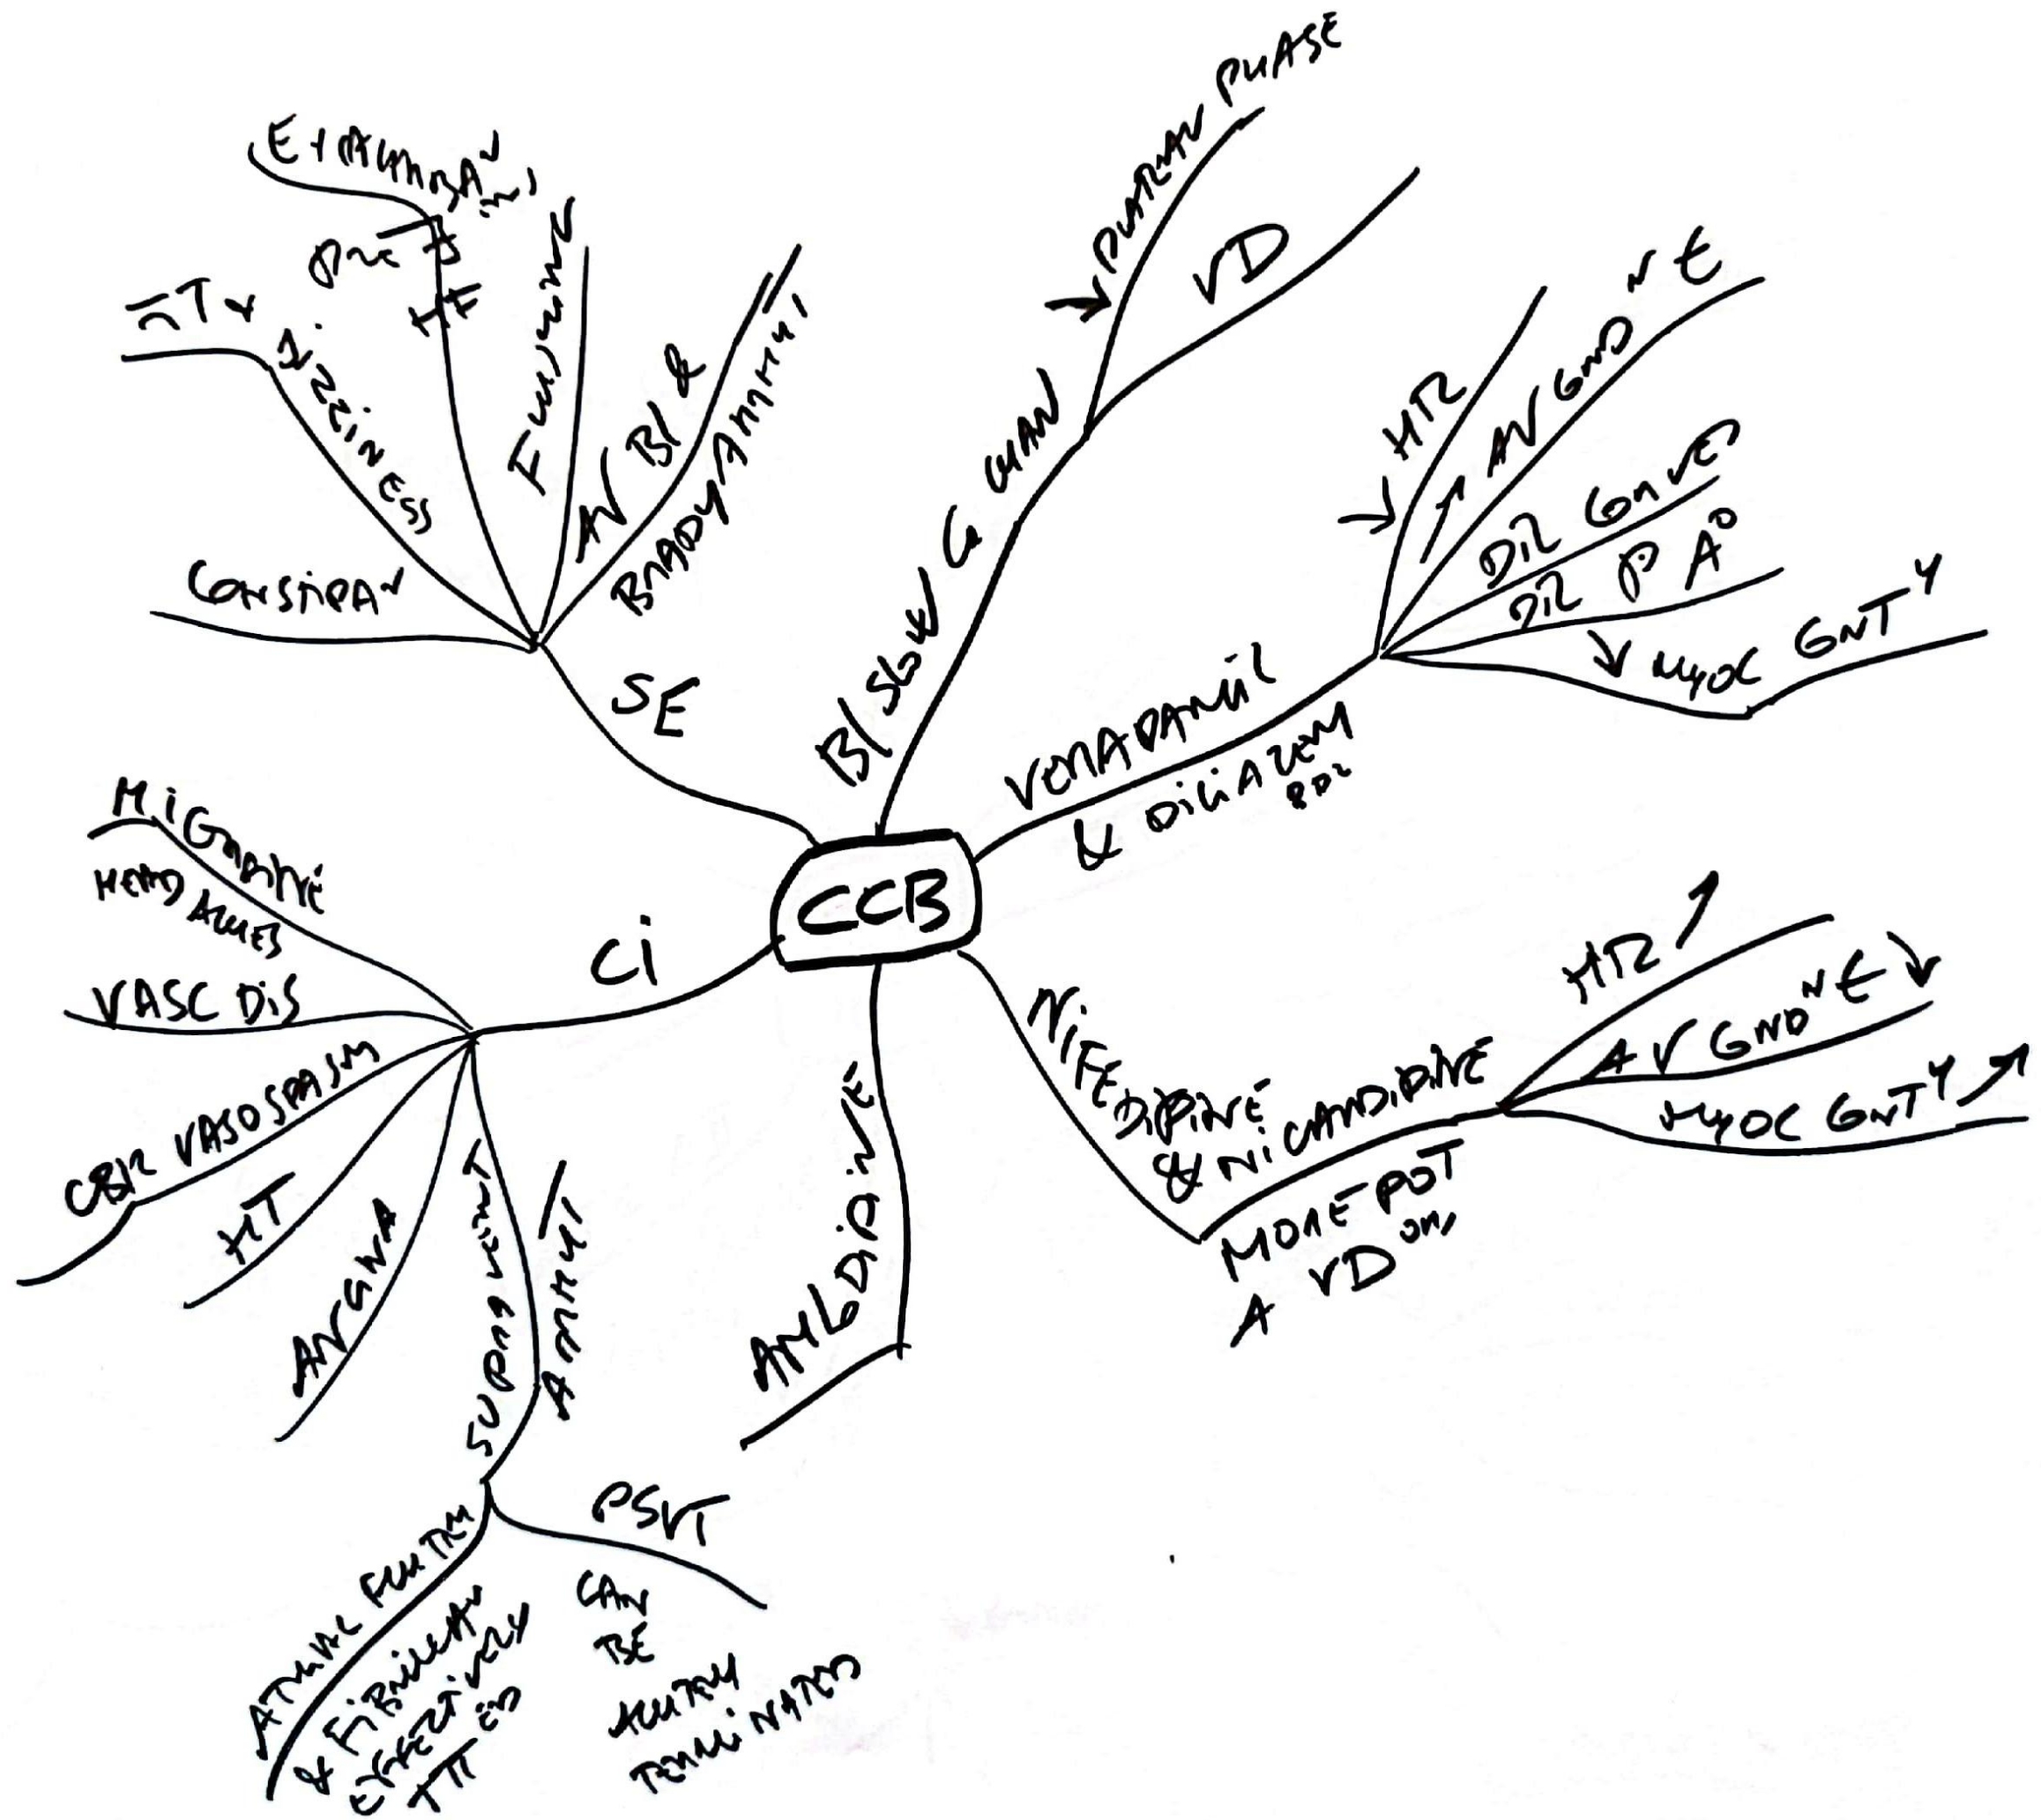 CCB
BL SLOW Ca CHAN
↓ PLATEAU PHASE
VD
VERAPAMIL
& DILTIAZEM
↓ HR
↑ AV COND N E
DIL COR VES
DIL P A
↓ MYOC CONT Y
NIFEDIPINE
& NICARDIPINE
MORE POT
A VD
HR ↑
AV COND N E ↓
MYOC CONT Y ↑
AMLODIPINE
CI
MIGRAINE
HEADACHES
VASC DIS
CBR VASOSPASM
HT
ANGINA
SUPRAVENT
ARRHYT
PSVT
CAN
BE
ACUTELY
TERMINATED
ATRIAL FLUTTER
& FIBRILLAN
EFFECTIVELY
TTT ED
SE
CONSTIPAN
DIZZINESS
HF
FLUSHING
AV Bl &
BRADYARRHYT